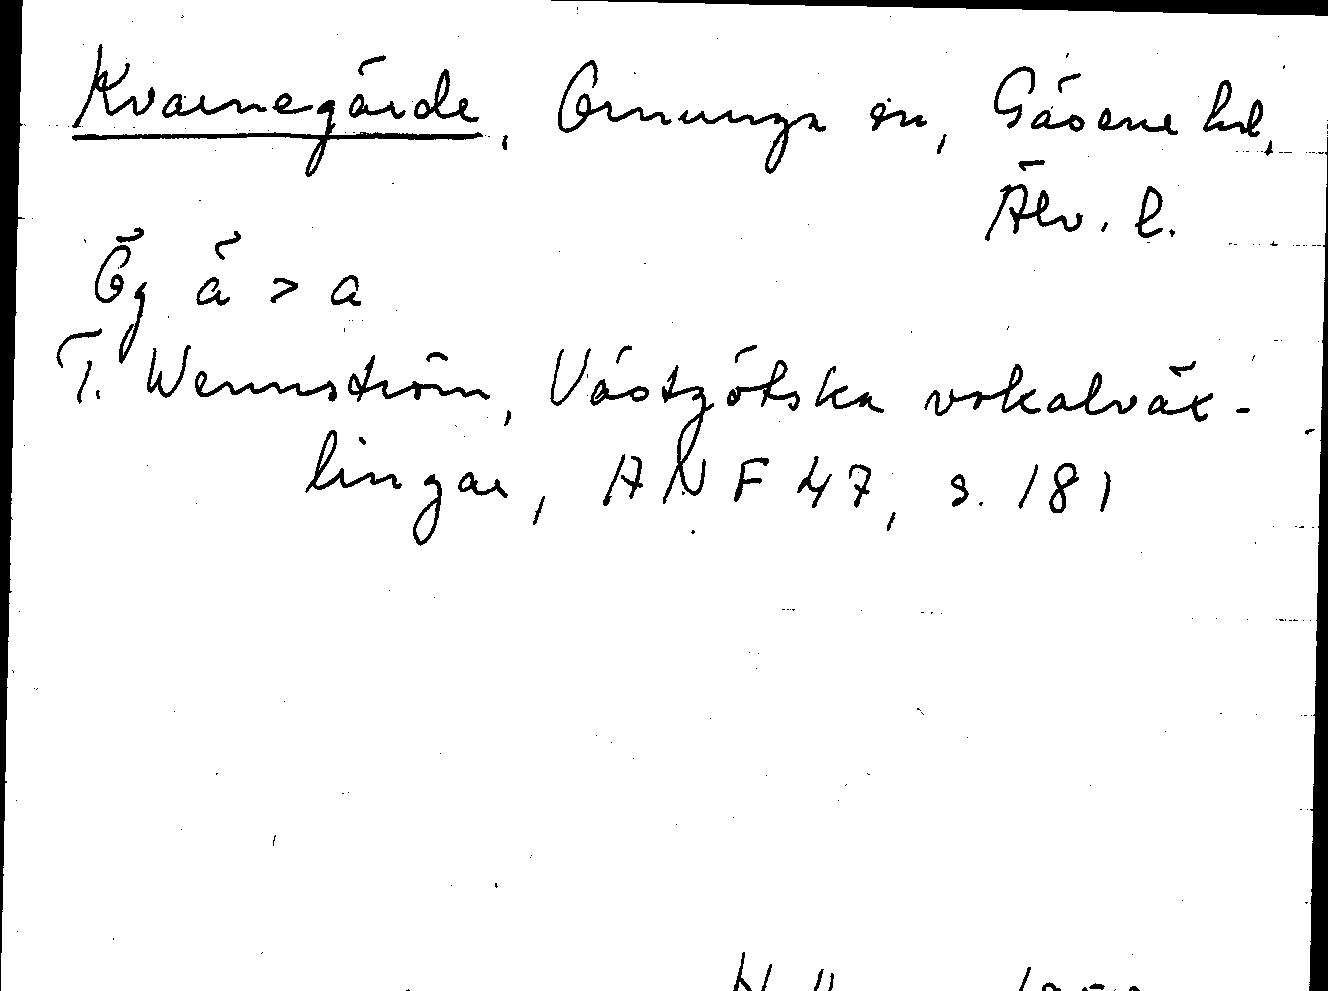 Kvarnegärde, Ornunga sn, Gäsene hd,
Älv. l.
Og ä > a
T. Wennström, Västgötska vokalväx-
lingar, ANF 47, s. 181